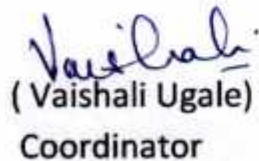 Vaishali
( Vaishali Ugale)
Coordinator